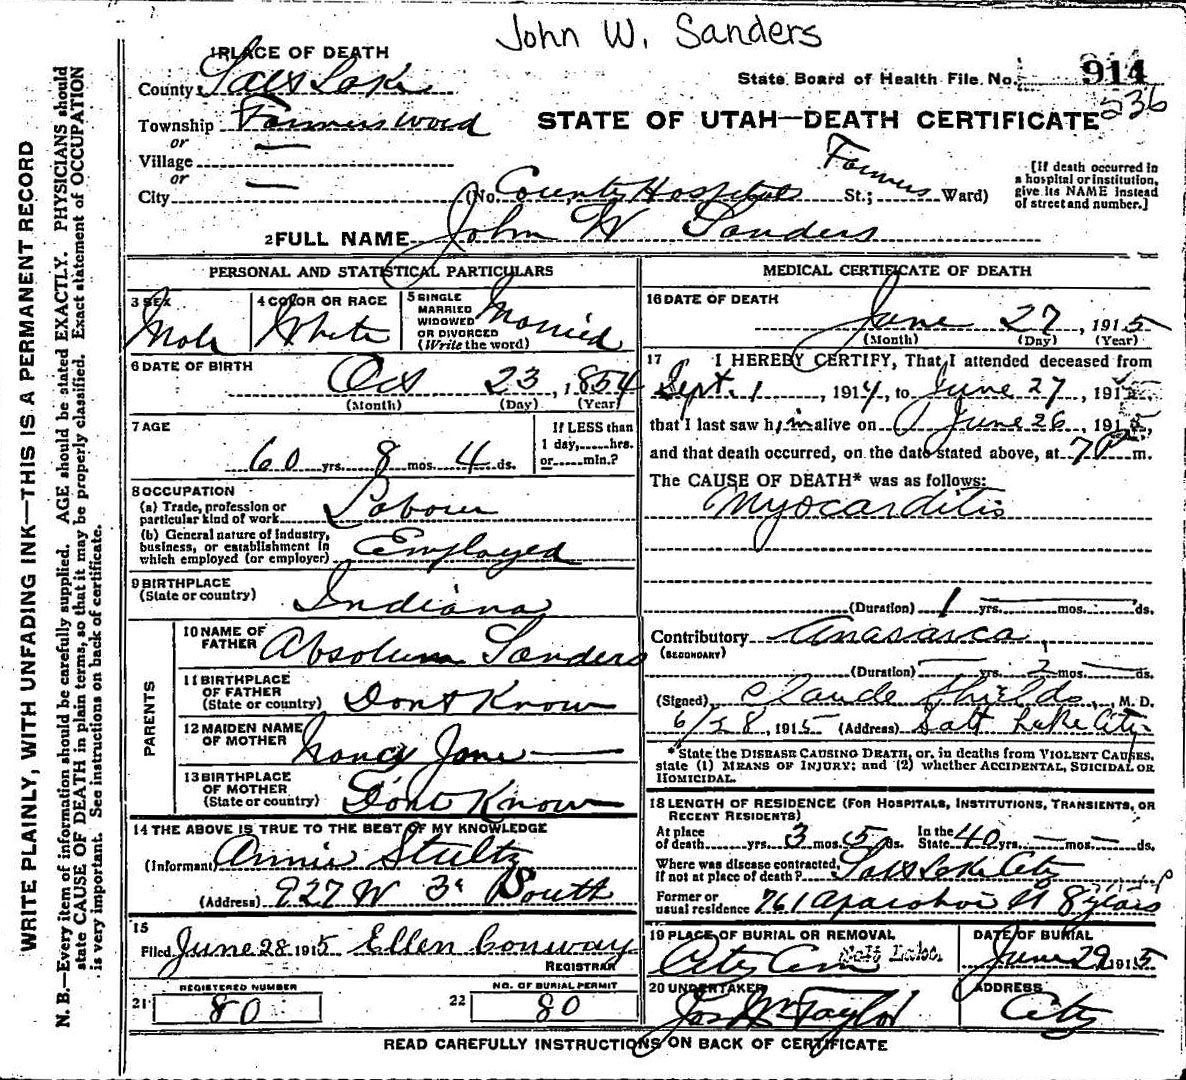 John W. Sanders
1 PLACE OF DEATH
County Salt Lake
State Board of Health File No. 914
236
Township Farmers Ward
or
Village
or
City
STATE OF UTAH—DEATH CERTIFICATE
(No. County Hospital St.; Farmers Ward)
[If death occurred in
a hospital or institution,
give its NAME instead
of street and number.]
2 FULL NAME John W Sanders
PERSONAL AND STATISTICAL PARTICULARS
3 SEX
Male
4 COLOR OR RACE
White
5 SINGLE
MARRIED
WIDOWED
OR DIVORCED
(Write the word)
Married
6 DATE OF BIRTH
Oct 23, 1854
(Month) (Day) (Year)
7 AGE
60 yrs. 8 mos. 4 ds.
If LESS than
1 day, hrs.
or min.?
8 OCCUPATION
(a) Trade, profession or
particular kind of work Labour
(b) General nature of industry,
business, or establishment in
which employed (or employer) Employed
9 BIRTHPLACE
(State or country) Indiana
PARENTS
10 NAME OF
FATHER Absolum Sanders
11 BIRTHPLACE
OF FATHER
(State or country) Dont Know
12 MAIDEN NAME
OF MOTHER Nancy Jane
13 BIRTHPLACE
OF MOTHER
(State or country) Dont Know
14 THE ABOVE IS TRUE TO THE BEST OF MY KNOWLEDGE
(Informant) Annie Stultz
(Address) 927 W 3d South
15
Filed June 28 1915 Ellen Conway
REGISTRAR
REGISTERED NUMBER
21 80
NO. OF BURIAL PERMIT
22 80
MEDICAL CERTIFICATE OF DEATH
16 DATE OF DEATH
June 27, 1915
(Month) (Day) (Year)
17 I HEREBY CERTIFY, That I attended deceased from
Sept. 1, 1914, to June 27, 1915,
that I last saw him alive on June 26, 1915,
and that death occurred, on the date stated above, at 7 P m.
The CAUSE OF DEATH* was as follows:
Myocarditis
(Duration) 1 yrs. mos. ds.
Contributory Anasarca
(SECONDARY)
(Duration) yrs. 2 mos. ds.
(Signed) Claude Shields, M. D.
6/28, 1915 (Address) Salt Lake City
*State the DISEASE CAUSING DEATH, or, in deaths from VIOLENT CAUSES,
state (1) MEANS OF INJURY; and (2) whether ACCIDENTAL, SUICIDAL OR
HOMICIDAL.
18 LENGTH OF RESIDENCE (FOR HOSPITALS, INSTITUTIONS, TRANSIENTS, OR
RECENT RESIDENTS)
At place
of death yrs. 3 mos. 5 ds. In the
State 40 yrs. mos. ds.
Where was disease contracted,
If not at place of death? Salt Lake City
Former or
usual residence 761 St 8 years
19 PLACE OF BURIAL OR REMOVAL
City Cem Salt Lake
DATE OF BURIAL
June 29, 1915
20 UNDERTAKER
Jos Wm Taylor
ADDRESS
City
READ CAREFULLY INSTRUCTIONS ON BACK OF CERTIFICATE
WRITE PLAINLY, WITH UNFADING INK—THIS IS A PERMANENT RECORD
N. B.—Every item of information should be carefully supplied. AGE should be stated EXACTLY. PHYSICIANS should
state CAUSE OF DEATH in plain terms, so that it may be properly classified. Exact statement of OCCUPATION
is very important. See instructions on back of certificate.